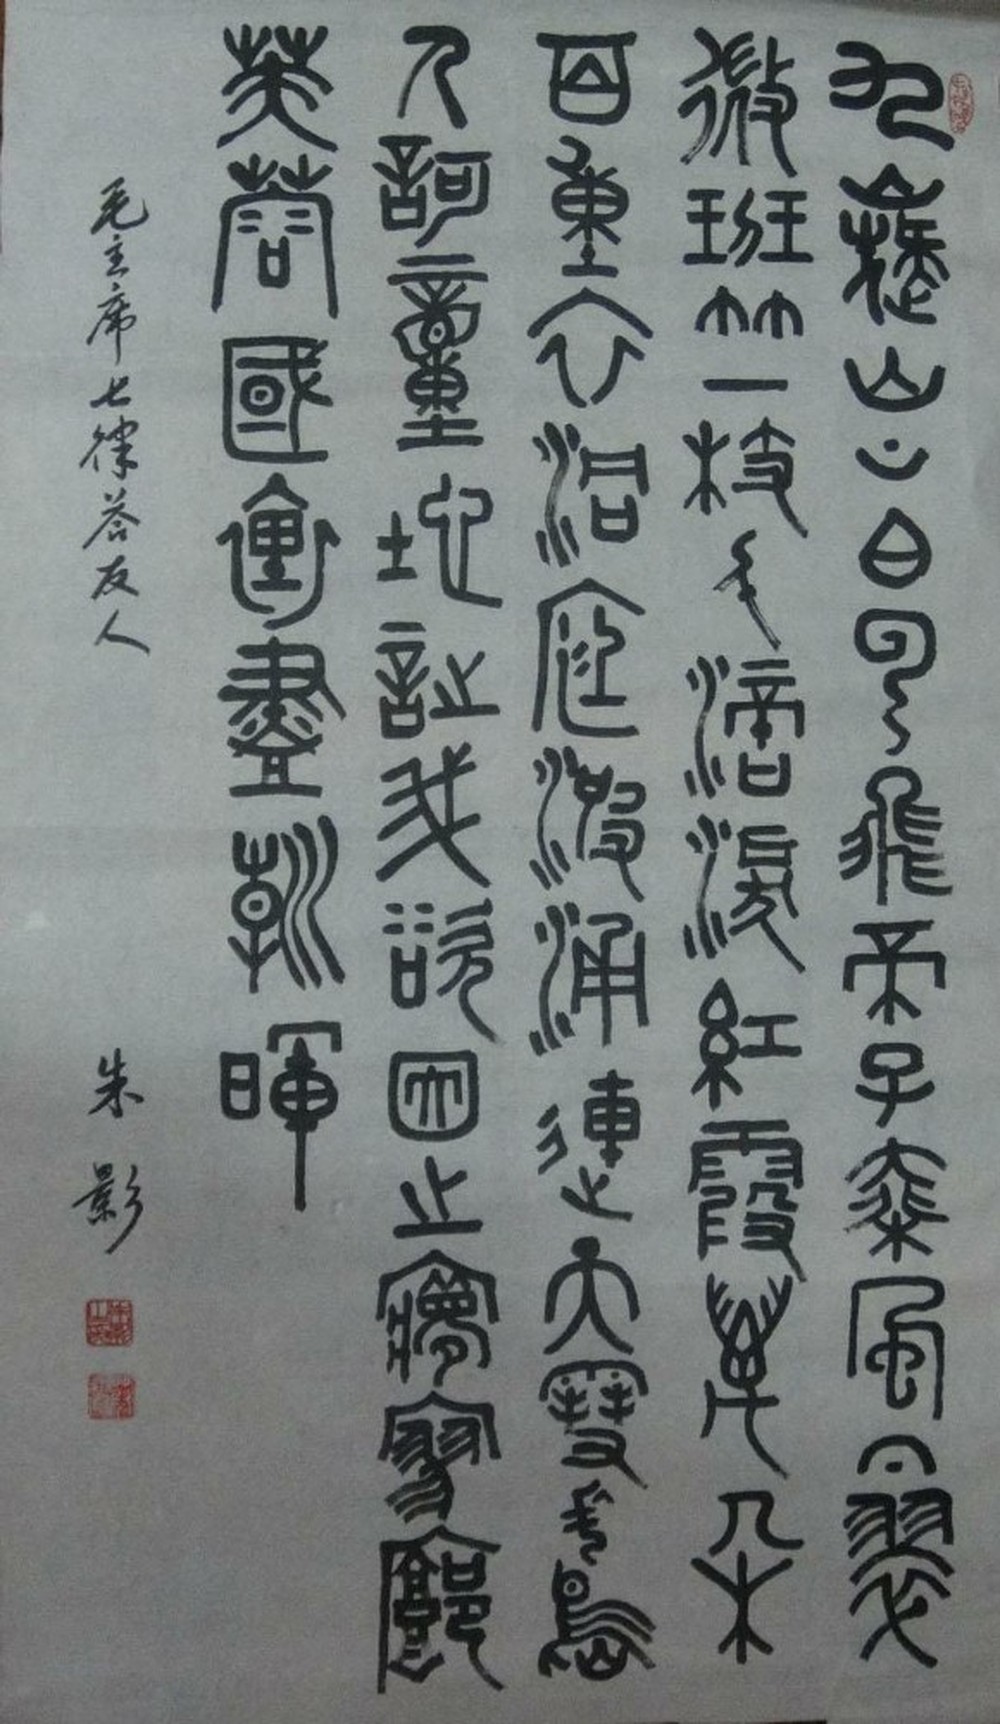 九嶷山上白云飛帝子乘風下翠
微班竹一枝千滴淚紅霞萬朵
百重衣洞庭波涌連天雪長島
人謌動地詩我欲因之夢寥廓
芙蓉國裏盡朝暉
毛主席七律答友人
朱影